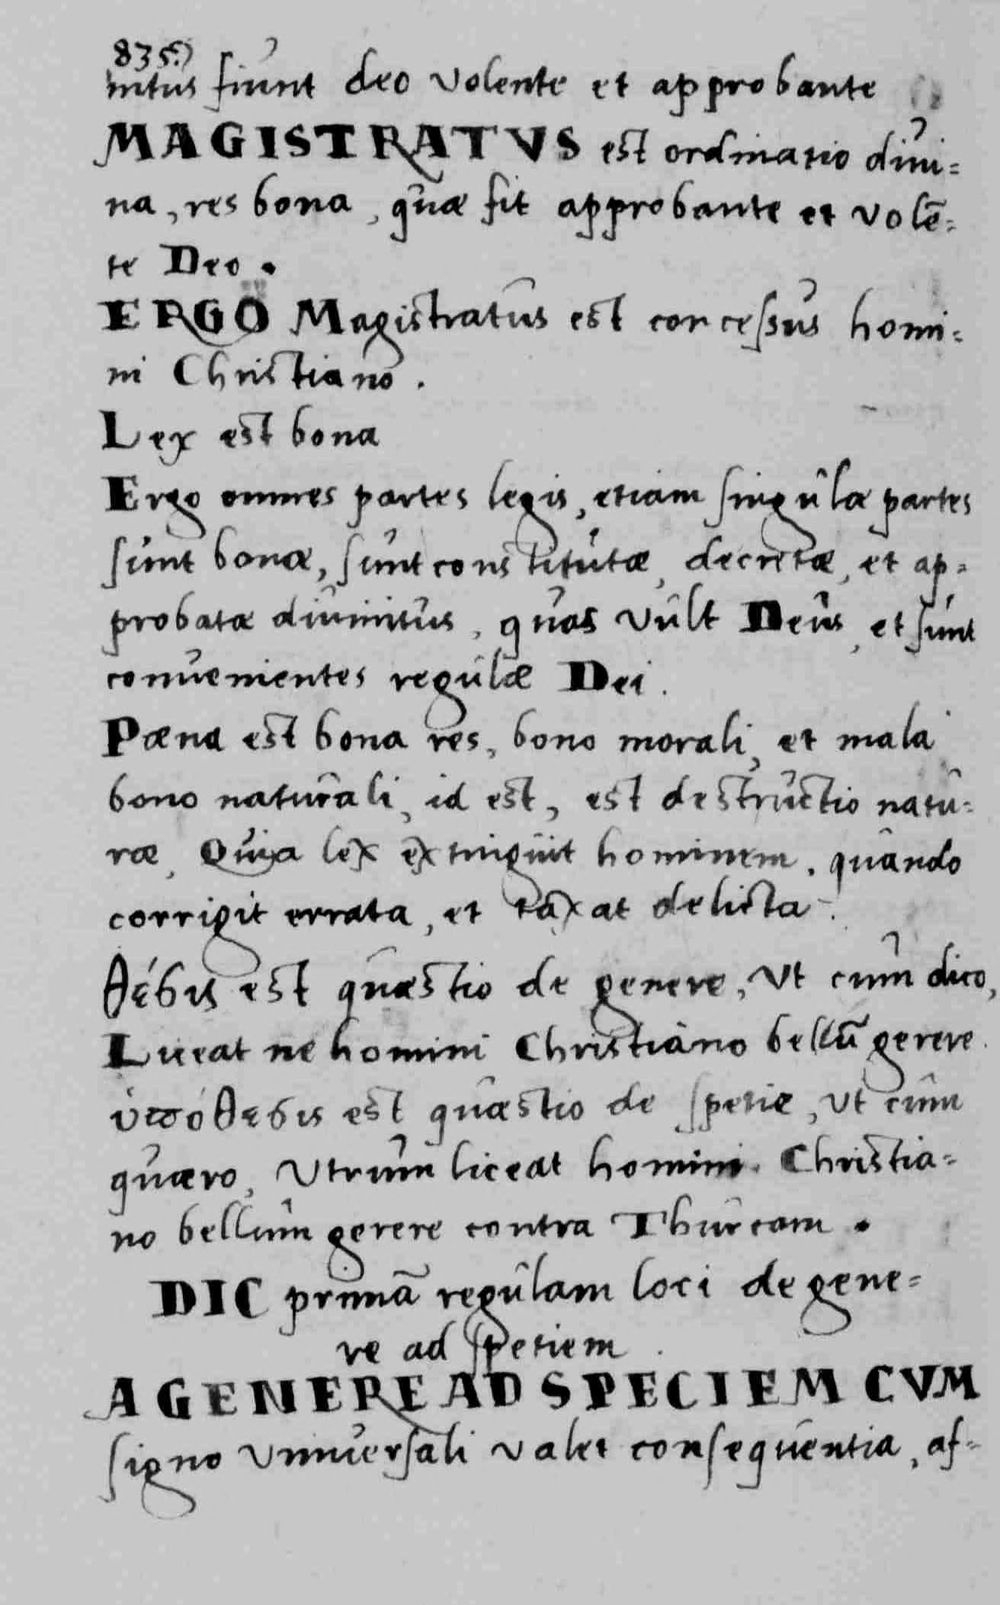 835.)
nitus fiunt deo volente et approbante
MAGISTRATVS est ordinatio divi=
na, res bona, quæ fit approbante et volē=
te Deo.
ERGO Magistratus est concessus homi=
ni Christiano.
Lex est bona
Ergo omnes partes legis, etiam singulæ partes
sunt bonæ, sunt constitutæ, decretæ, et ap=
probatæ divinitus, quas vult Deus, et sunt
convenientes regulæ Dei.
Pæna est bona res, bono morali, et mala
bono naturali, id est, est destructio natu=
ræ, Quia lex extinguit hominem, quando
corrigit errata, et taxat delicta.
θέσις est quæstio de genere, Ut cum dico,
Liceat ne homini Christiano bellū gerere.
ὑπόθεσις est quæstio de spetie, Ut cum
quæro, Utrum liceat homini Christia=
no bellum gerere contra Thurcam.
DIC primā regulam loci de gene=
re ad spetiem.
A GENERE AD SPECIEM CVM
signo universali valet consequentia, af=